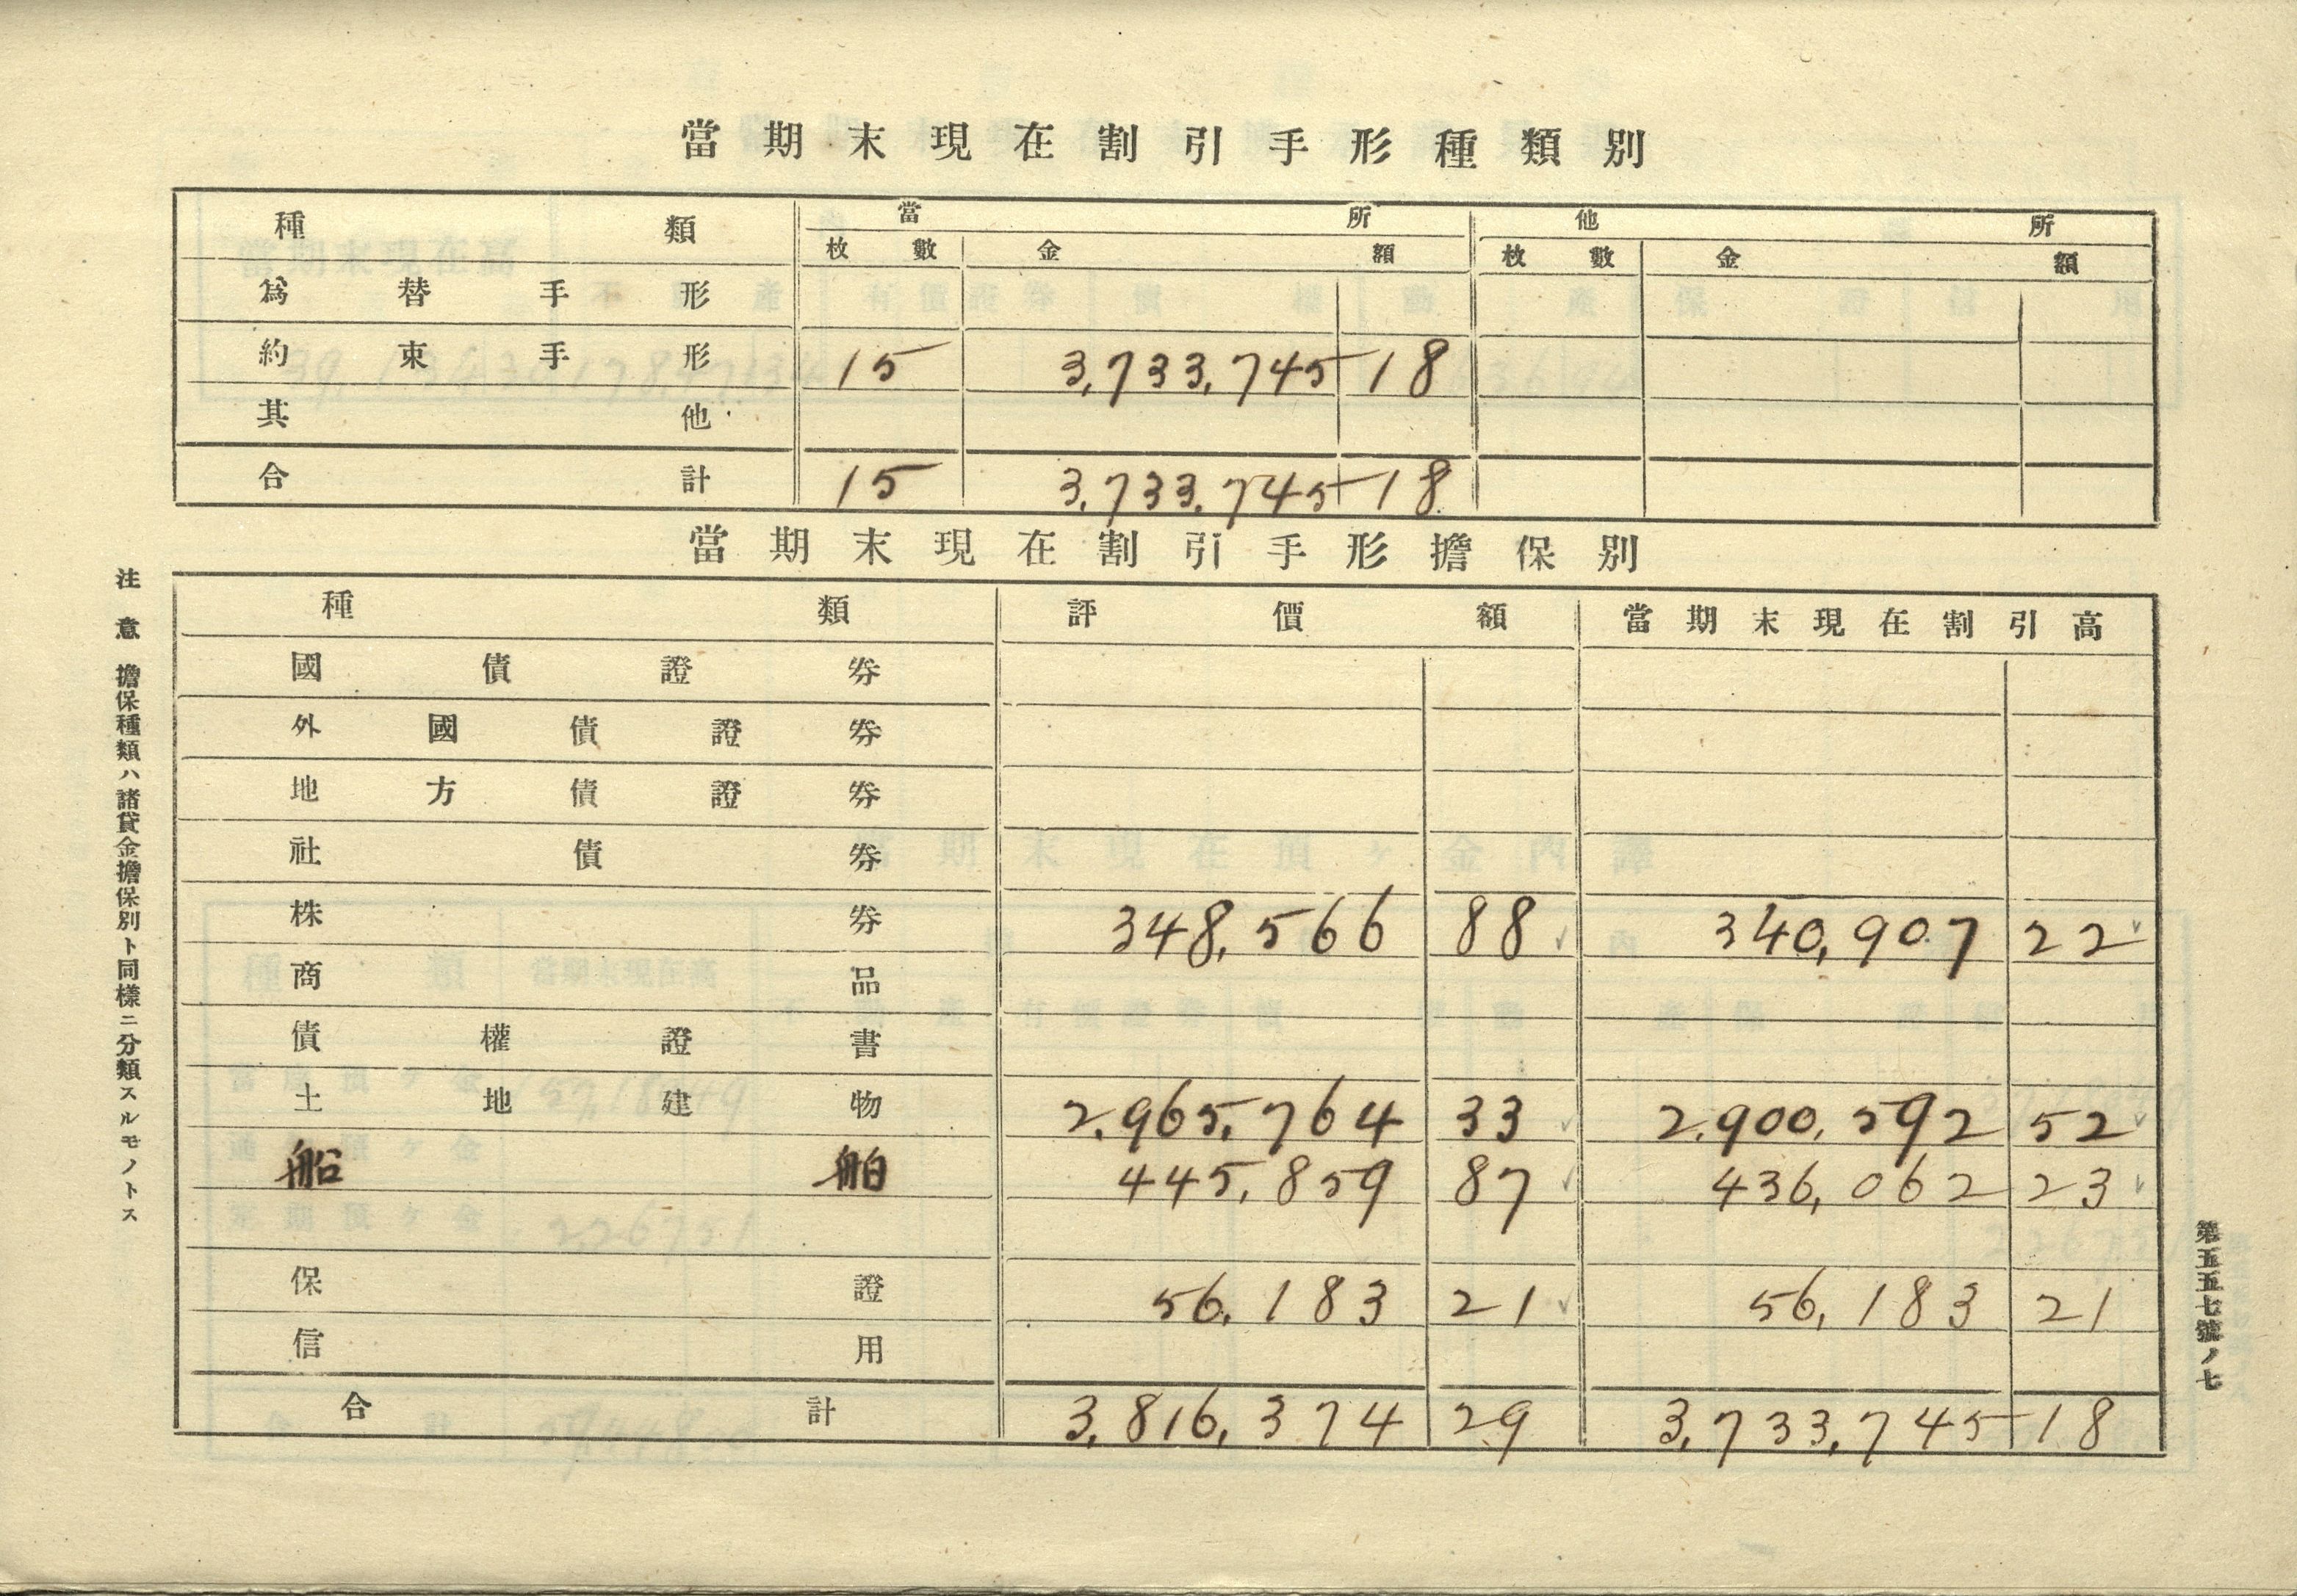 當期末現在割引手形種類別
種類 當所 他所
枚數 金額 枚數 金額
爲替手形
約束手形 15 3,733,745 18
其他
合計 15 3,733,745 18
當期末現在割引手形擔保別
種類 評價額 當期末現在割引高
國債證券
外國債證券
地方債證券
社債券
株券 348,566 88 340,907 22
商品
債權證書
土地建物 2,965,764 33 2,900,592 52
船舶 445,859 87 436,062 23
保證 56,183 21 56,183 21
信用
合計 3,816,374 29 3,733,745 18
注意 擔保種類ハ諸貸金擔保別ト同樣ニ分類スルモノトス
第五五七號ノ七